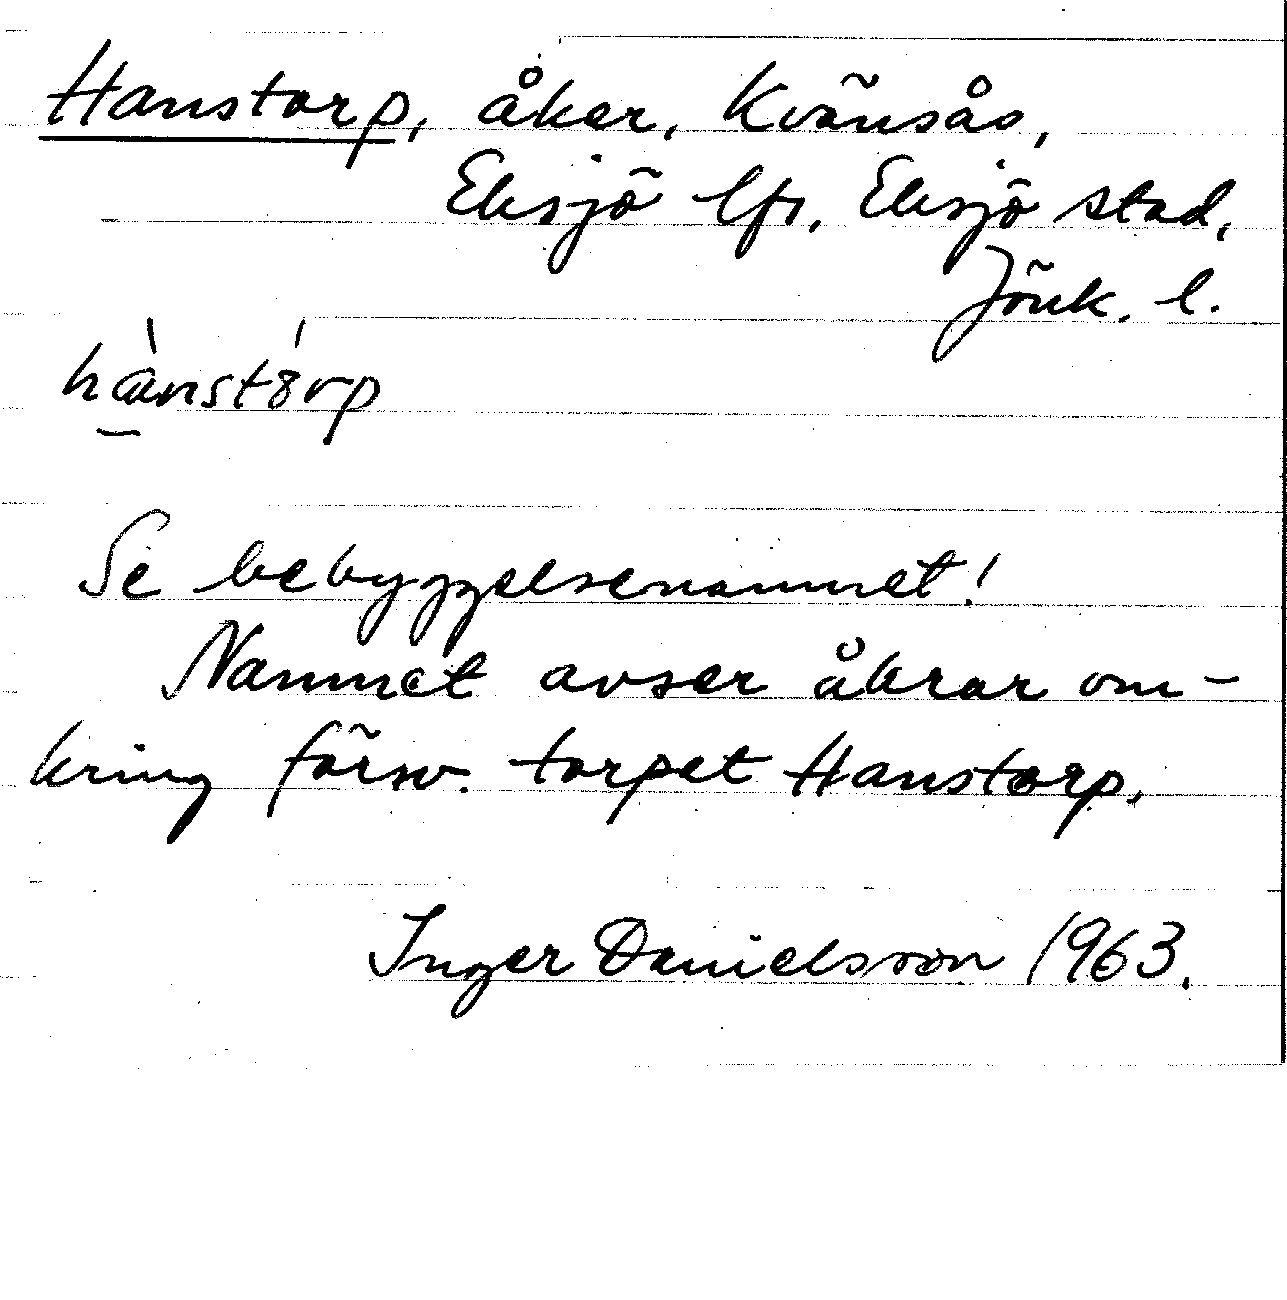 Hanstorp, åker, Kvänsås,
Eksjö lfs, Eksjö stad,
Jönk. l.
hànstórp
Se bebyggelsenamnet!
Namnet avser åkrar om-
kring försv. torpet Hanstorp.
Inger Danielsson 1963.